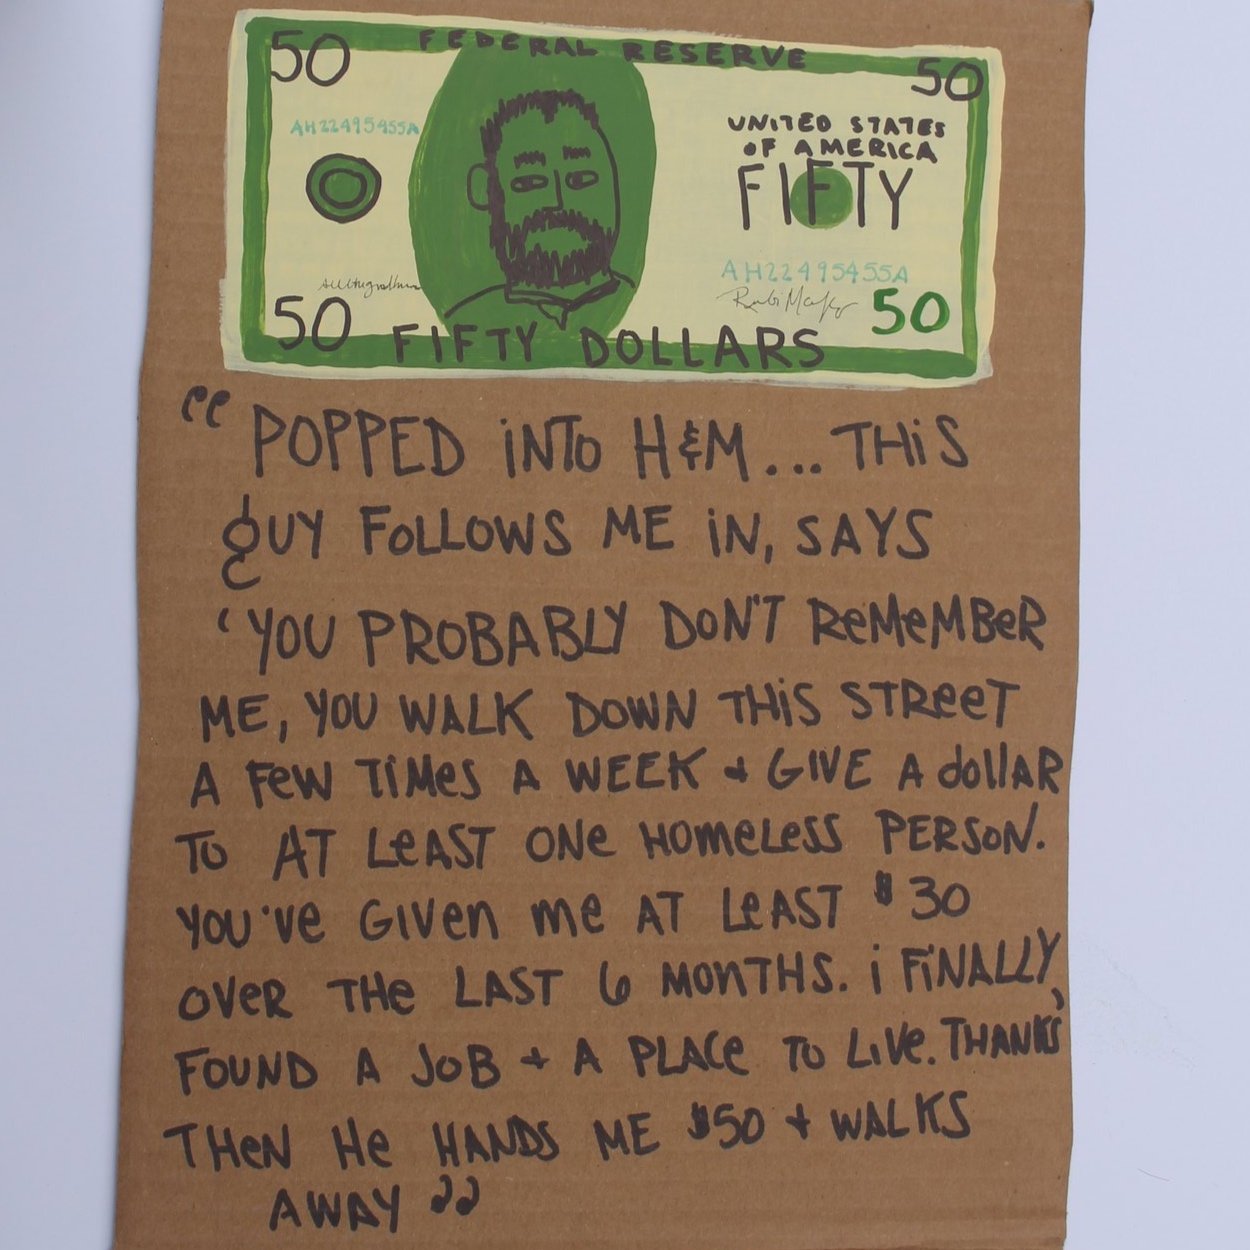 50 FEDERAL RESERVE 50
AH22495455A
UNITED STATES
OF AMERICA
FIFTY
AH22495455A
50 FIFTY DOLLARS 50
“POPPED iNTO H&M... THiS
gUY FOLLOWS ME iN, SAYS
‘YOU PROBABLY DON'T ReMeMBeR
ME, YOU WALK DOWN THiS STReeT
A FeW TiMes A WEEK + GIVE A dollAR
TO AT LeAST ONe HOMeLeSS PERSON.
YOU'Ve GiVen me AT LeAST $30
OVeR THe LAST 6 MOnTHS. i FiNALLY
FOUND A JOB + A PLACe TO LiVe. THANKS’
THeN He HANDS ME $50 + WALKS
AWAY”